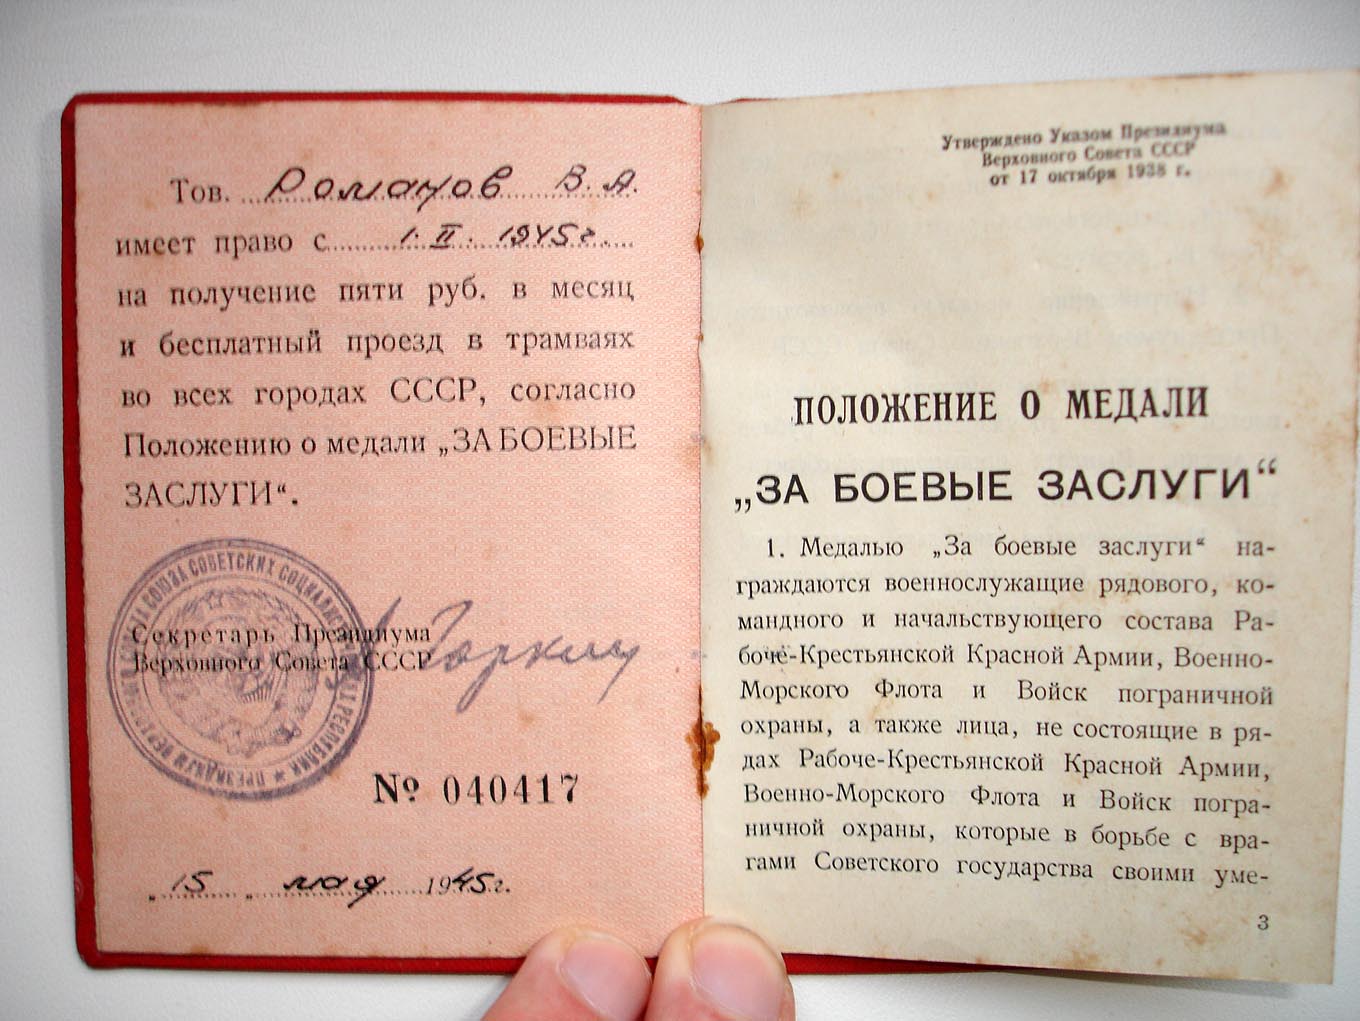 Тов. Романов В. А.
имеет право с 1. II. 1945 г.
на получение пяти руб. в месяц
и бесплатный проезд в трамваях
во всех городах СССР, согласно
Положению о медали „ЗА БОЕВЫЕ
ЗАСЛУГИ“.
Секретарь Президиума
Верховного Совета СССР
Горкин
СОЮЗА СОВЕТСКИХ
ПРЕЗИДИУМ
№ 040417
„15 „ мая 1945 г.
Утверждено Указом Президиума
Верховного Совета СССР
от 17 октября 1938 г.
ПОЛОЖЕНИЕ О МЕДАЛИ
„ЗА БОЕВЫЕ ЗАСЛУГИ“
1. Медалью „За боевые заслуги“ на-
граждаются военнослужащие рядового, ко-
мандного и начальствующего состава Ра-
боче-Крестьянской Красной Армии, Военно-
Морского Флота и Войск пограничной
охраны, а также лица, не состоящие в ря-
дах Рабоче-Крестьянской Красной Армии,
Военно-Морского Флота и Войск погра-
ничной охраны, которые в борьбе с вра-
гами Советского государства своими уме-
3